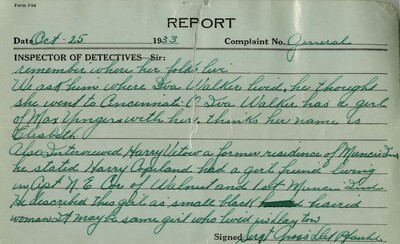 Form F84
REPORT
Date Oct-25 1933 Complaint No. General
INSPECTOR OF DETECTIVES— Sir:
remember where her folks live
We ask him where Iva Walker lived, he thought
she went to Cincinnati O. Iva Walker has a girl
of Max with her, thinks her name is
Elisbeth
Also Interviewed Harry a former residence of Muncie Ind
he stated Harry Copeland had a girl friend living
in Apt N. E. Cor of Walnut and 1st Muncie Ind.
He described this girl as small black haired
woman It may be same girl who lived in Dayton
Signed Sergt